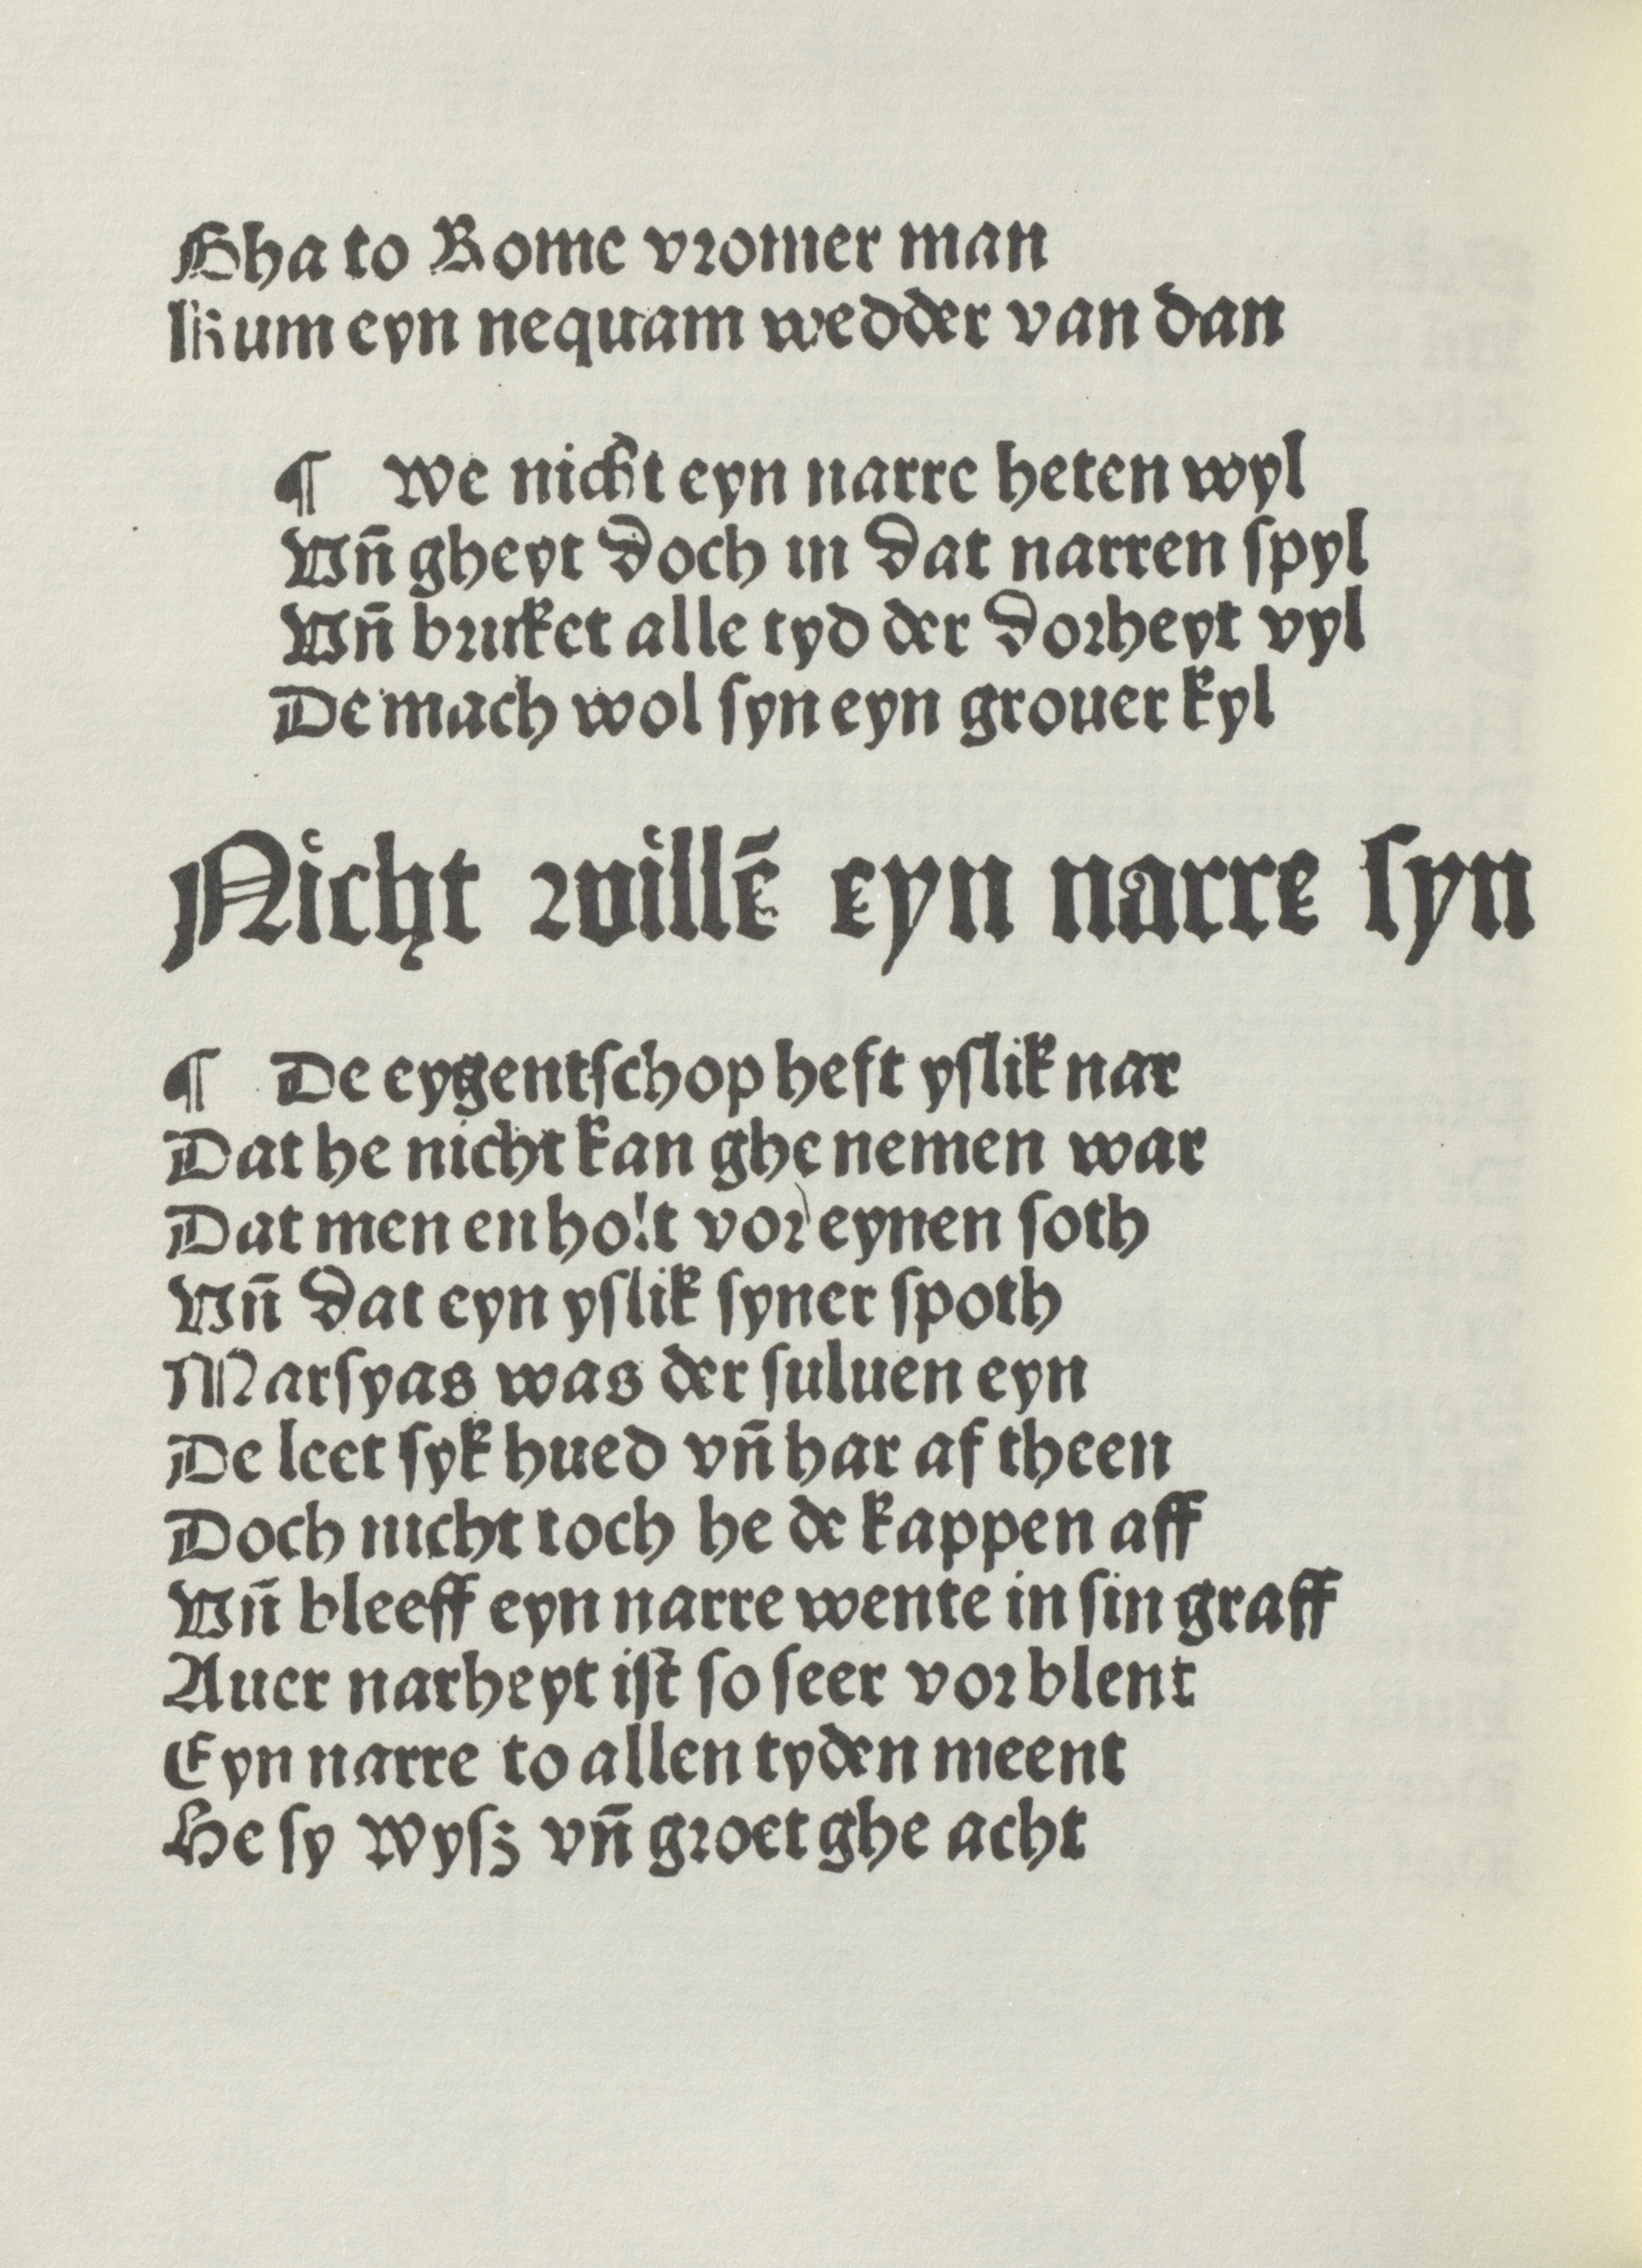 Gha to Rome vromer man
Kum eyn nequam wedder van dan
¶ We nicht eyn narre heten wyl
Vn̄ gheyt doch in dat narren ſpyl
Vn̄ bruket alle tyd der dorheyt vyl
De mach wol ſyn eyn grouer kyl
Nicht willē eyn narre ſyn
¶ De eygentſchop heft yſlik nar
Dat he nicht kan ghe nemen war
Dat men en holt vor eynen ſoth
Vn̄ dat eyn yſlik ſyner ſpoth
Marſyas was der ſuluen eyn
De leet ſyk hued vn̄ har af theen
Doch nicht toch he de kappen aff
Vn̄ bleeff eyn narre wente in ſin graff
Auer narheyt iſt ſo ſeer vorblent
Eyn narre to allen tyden meent
He ſy wyſz vn̄ groet ghe acht